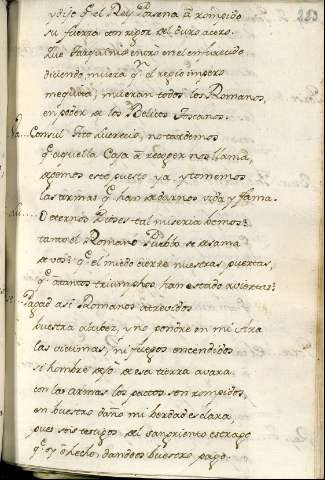 y dijo q̃ el Rey Porsena a rompido
su fuerza con rigor del duro acero.
que Tarquinio entro en el enfurecido
diciendo, muera q̃n el regio impero
me quita, mueran todos los Romanos,
en poder de los Belicos Toscanos.
Consul Tito Lucrecio, no tardemos
q̃ aquella Casa a recoger nos llama,
dejemos este puesto ya, y tomemos
las armas q̃ han de darnos vida y fama.
O eternos Dioses tal miseria vemos?
tanto el Romano Pueblo se
q̃ el miedo cierre nuestras puertas,
q̃ a tantos triumphos han estado aviertas?
asi Romanos atrevidos
buestra altibez, y no pondre en mi Ara
las victimas, ni fuegos encendidos
si hombre dejo de esa tierra avara
con las armas los pactos son rompidos,
en buestro daño mi berdad es clara,
pues sois testigos del sangriento estrago
q̃ oy e hecho, dandoos buestro pago.